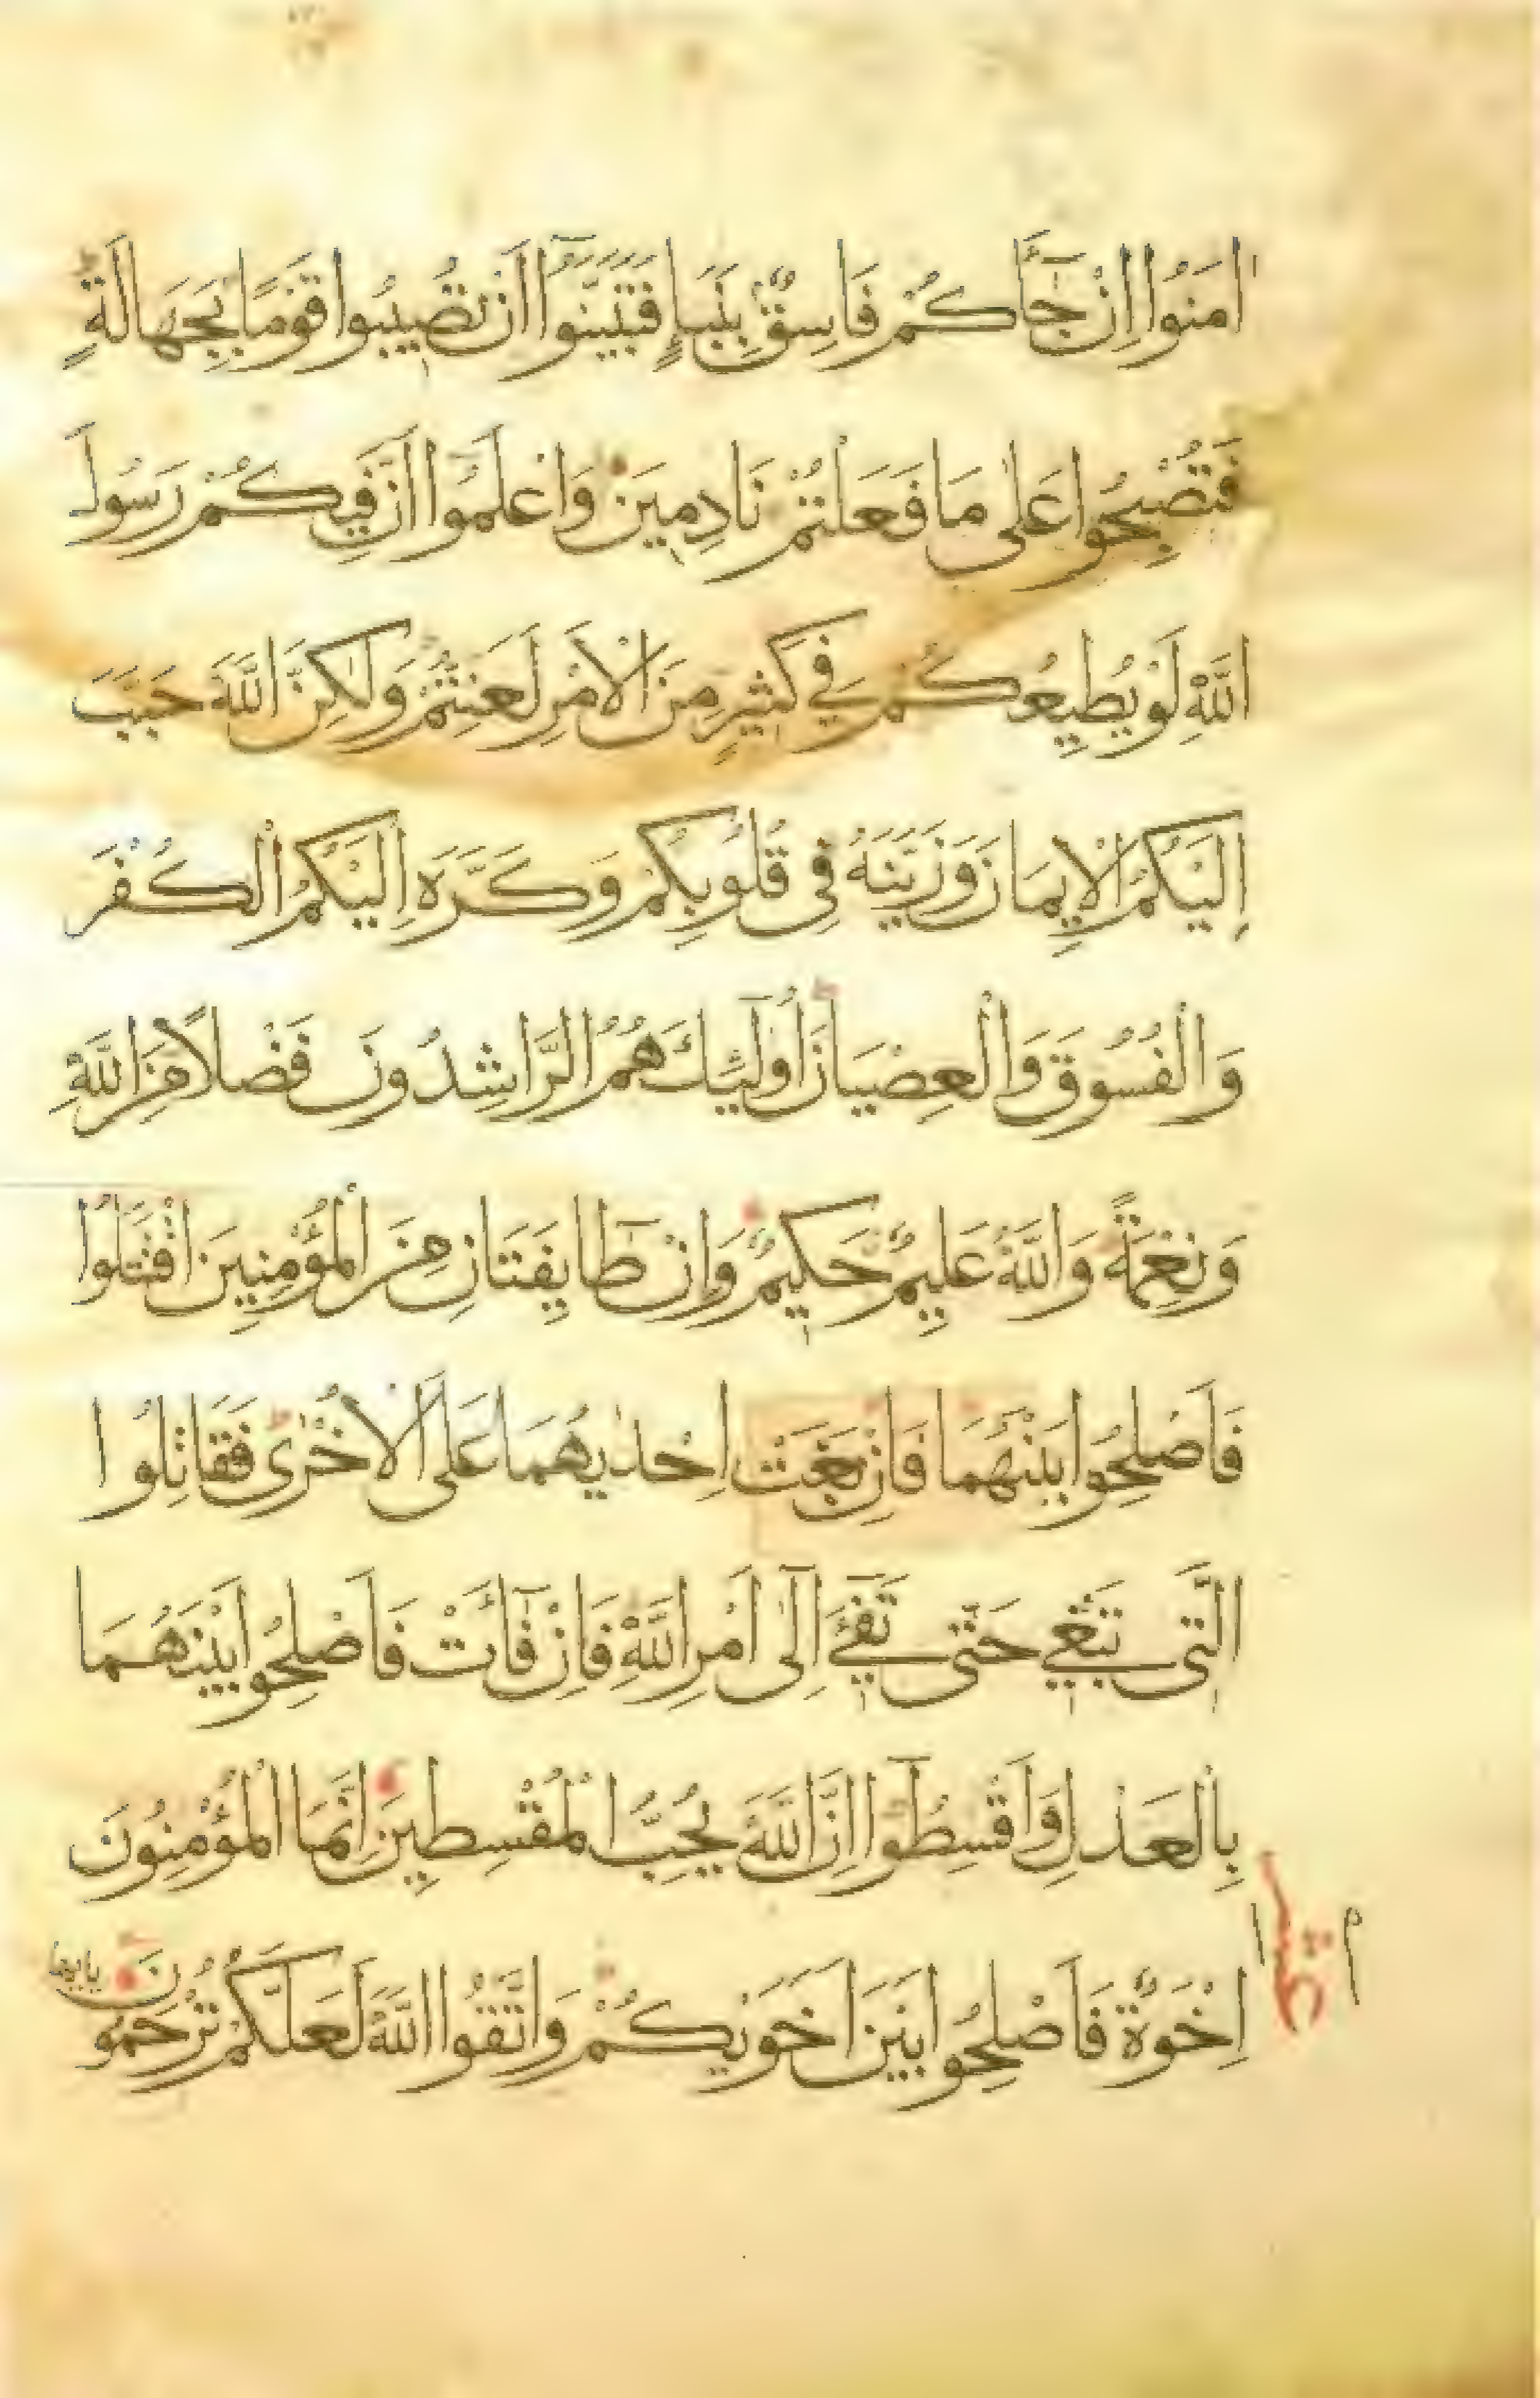 اٰمَنُوا اِنْ جَآءَكُمْ فَاسِقٌ بِنَبَاٍ فَتَبَيَّنُوٓا اَنْ تُصِيبُوا قَوْمًا بِجَهَالَةٍ
فَتُصْبِحُوا عَلٰى مَا فَعَلْتُمْ نَادِمِينَ وَاعْلَمُوٓا اَنَّ فِيكُمْ رَسُولَ
اللّٰهِ لَوْ يُطِيعُكُمْ فِي كَثِيرٍ مِنَ الْاَمْرِ لَعَنِتُّمْ وَلٰكِنَّ اللّٰهَ حَبَّبَ
اِلَيْكُمُ الْاِيمَانَ وَزَيَّنَهُ فِي قُلُوبِكُمْ وَكَرَّهَ اِلَيْكُمُ الْكُفْرَ
وَالْفُسُوقَ وَالْعِصْيَانَ اُولٰٓئِكَ هُمُ الرَّاشِدُونَ فَضْلًا مِنَ اللّٰهِ
وَنِعْمَةً وَاللّٰهُ عَلِيمٌ حَكِيمٌ وَاِنْ طَآيِفَتَانِ مِنَ الْمُؤْمِنِينَ اقْتَتَلُوا
فَاَصْلِحُوا بَيْنَهُمَا فَاِنْ بَغَتْ اِحْدٰيهُمَا عَلَى الْاُخْرٰى فَقَاتِلُوا
الَّتِي تَبْغِي حَتّٰى تَفِٓيءَ اِلٰٓى اَمْرِ اللّٰهِ فَاِنْ فَآءَتْ فَاَصْلِحُوا بَيْنَهُمَا
بِالْعَدْلِ وَاَقْسِطُوٓا اِنَّ اللّٰهَ يُحِبُّ الْمُقْسِطِينَ اِنَّمَا الْمُؤْمِنُونَ
اِخْوَةٌ فَاَصْلِحُوا بَيْنَ اَخَوَيْكُمْ وَاتَّقُوا اللّٰهَ لَعَلَّكُمْ تُرْحَمُونَ
يا ايها